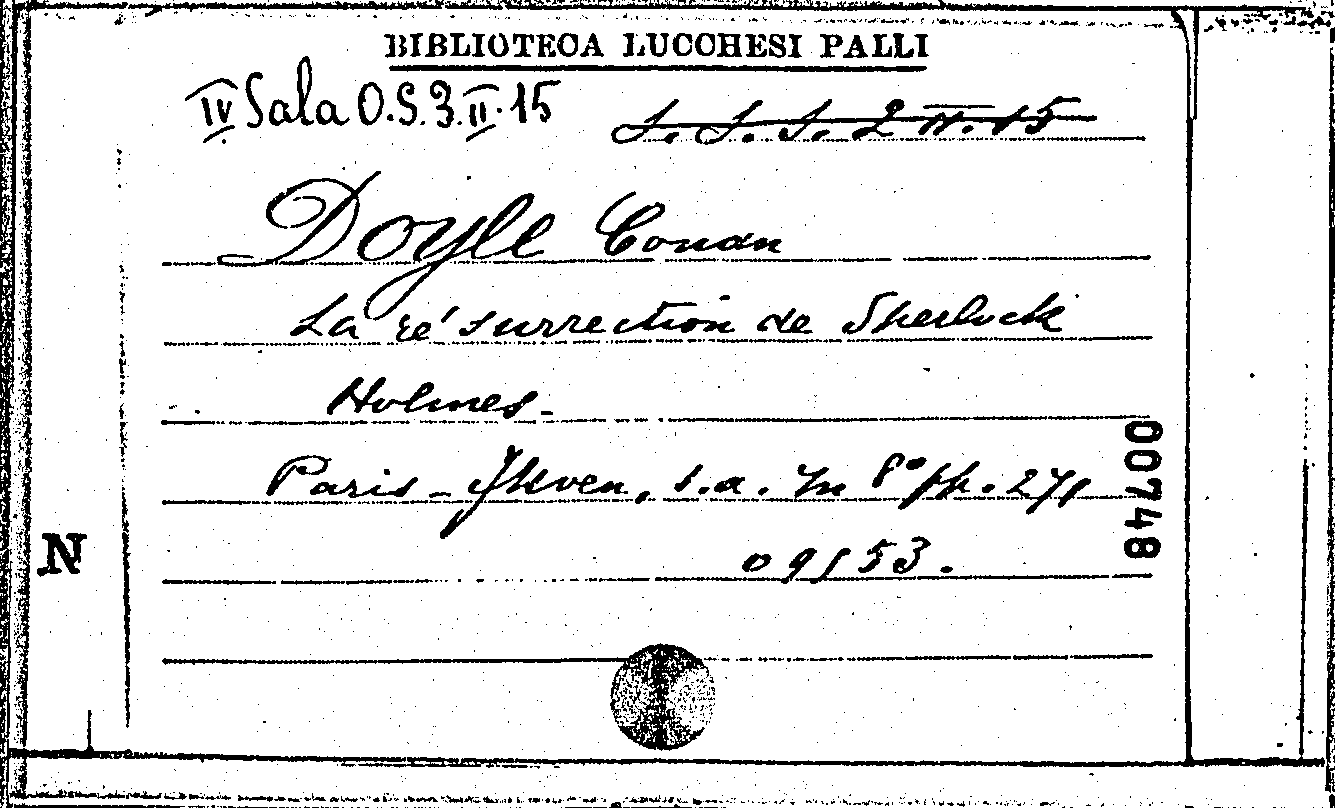 BIBLIOTECA LUCCHESI PALLI
IV Sala O.S.3.II.15
S. S. S. 2 II. 15
Doyle Conan
La résurrection de Sherlock
Holmes -
Paris - Juven, s.a. In 8° pp. 271
09553.
00748
N